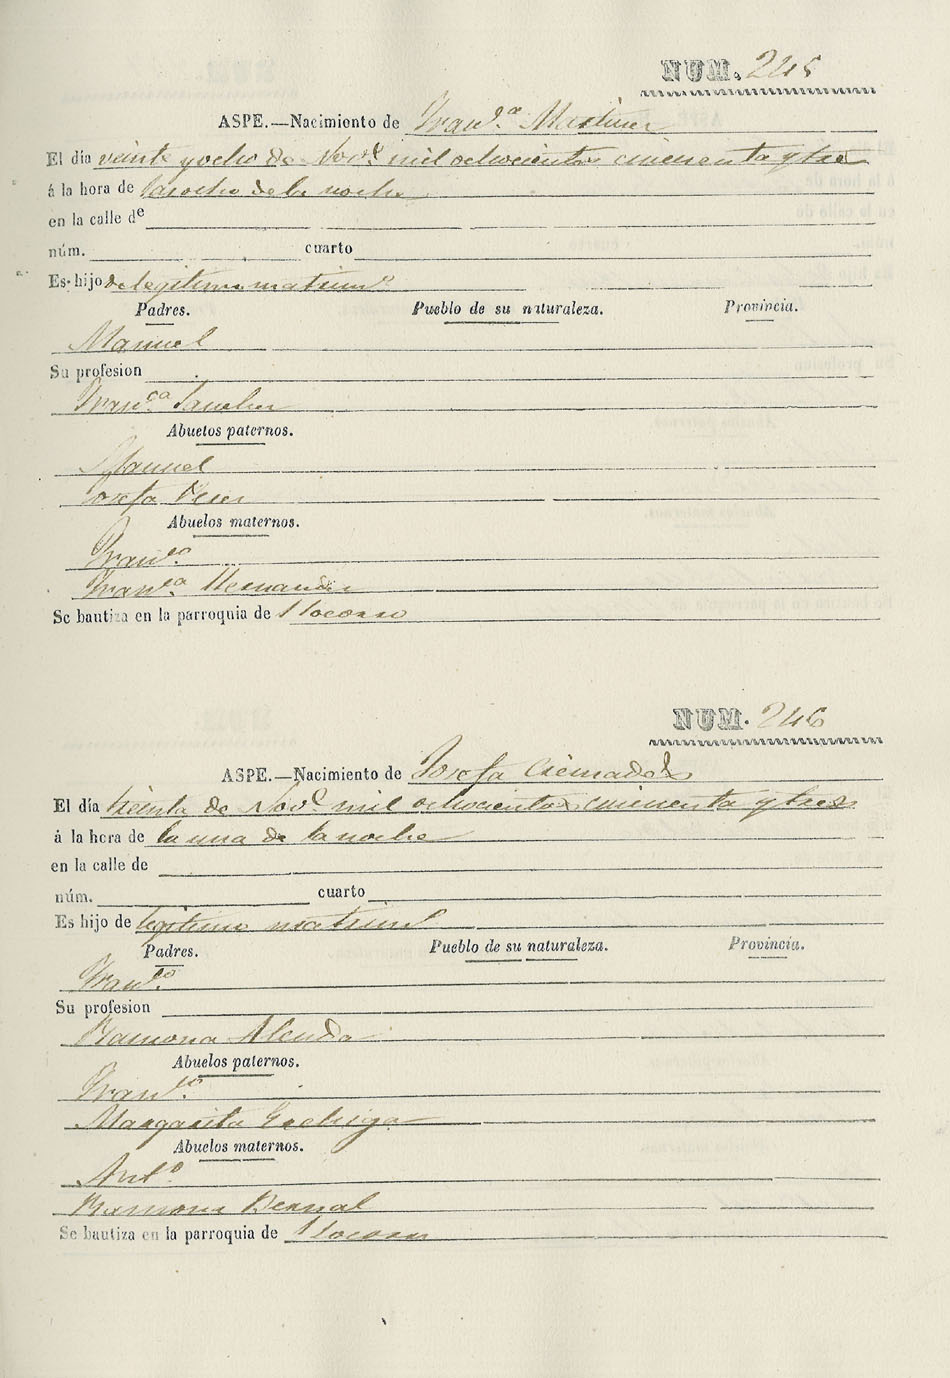 NUM. 245
ASPE.—Nacimiento de Franca Martinez
El dia veinte y ocho de Nove mil ochocientos cincuenta y tres
á la hora de las ocho de la noche
en la calle de
núm. cuarto
Es hijo de legitimo matrimo
Padres. Pueblo de su naturaleza. Provincia.
Manuel
Su profesion
Franca Sanchez
Abuelos paternos.
Manuel
Josefa
Abuelos maternos.
Franco
Franca Hernandez
Se bautiza en la parroquia de l Socorro
NUM. 246
ASPE.—Nacimiento de Josefa Cremades
El dia treinta de Nove mil ochocientos cincuenta y tres
á la hora de la una de la noche
en la calle de
núm. cuarto
Es hijo de legitimo matrim
Padres. Pueblo de su naturaleza. Provincia.
Franco
Su profesion
Ramona Alenda
Abuelos paternos.
Franco
Margarita
Abuelos maternos.
Anto
Ramona Bernal
Se bautiza en la parroquia de l Socorro